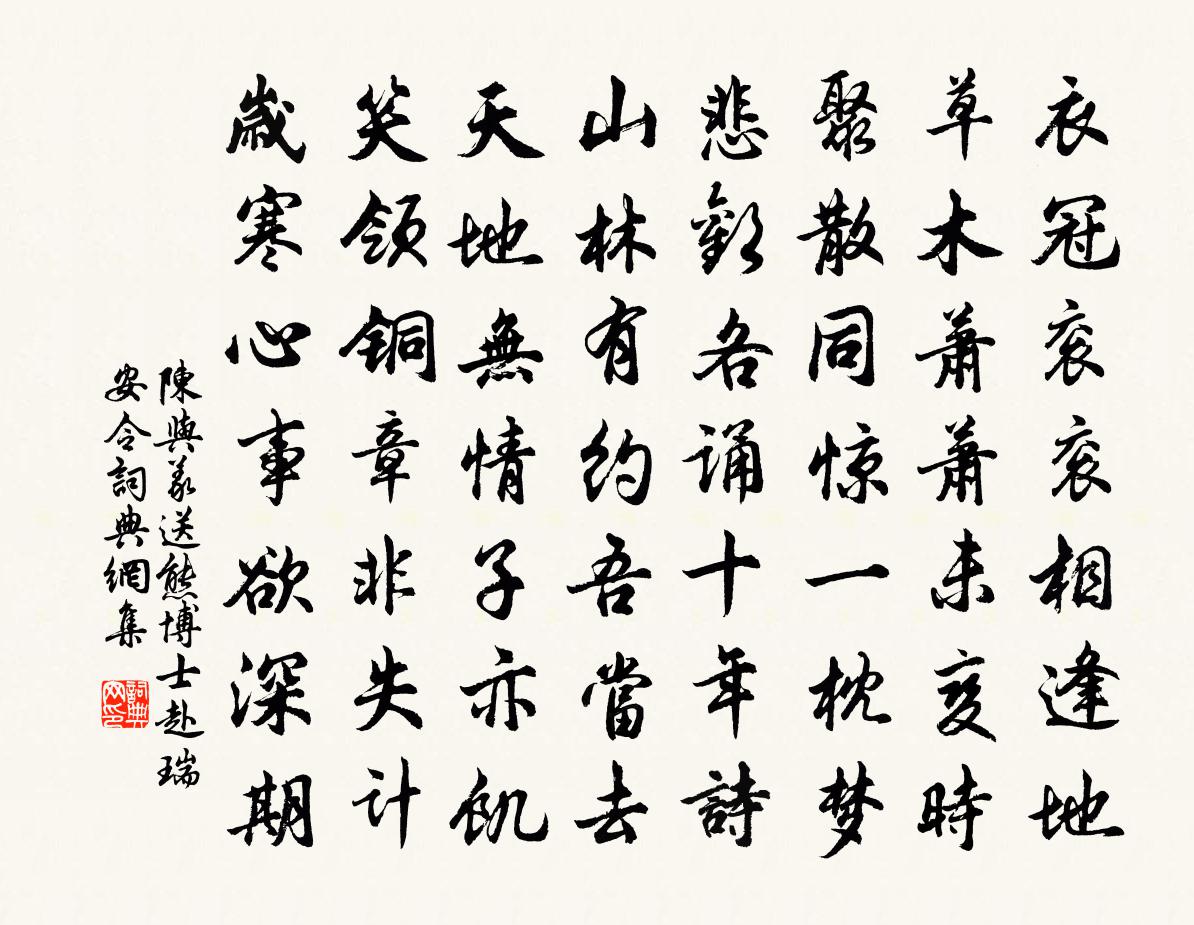 衣冠衮衮相逢地
草木萧萧未变時
聚散同惊一枕梦
悲歡各诵十年詩
山林有约吾當去
天地無情子亦飢
笑领铜章非失计
歲寒心事欲深期
陳與義送熊博士赴瑞
安令詞典網集
詞典网印